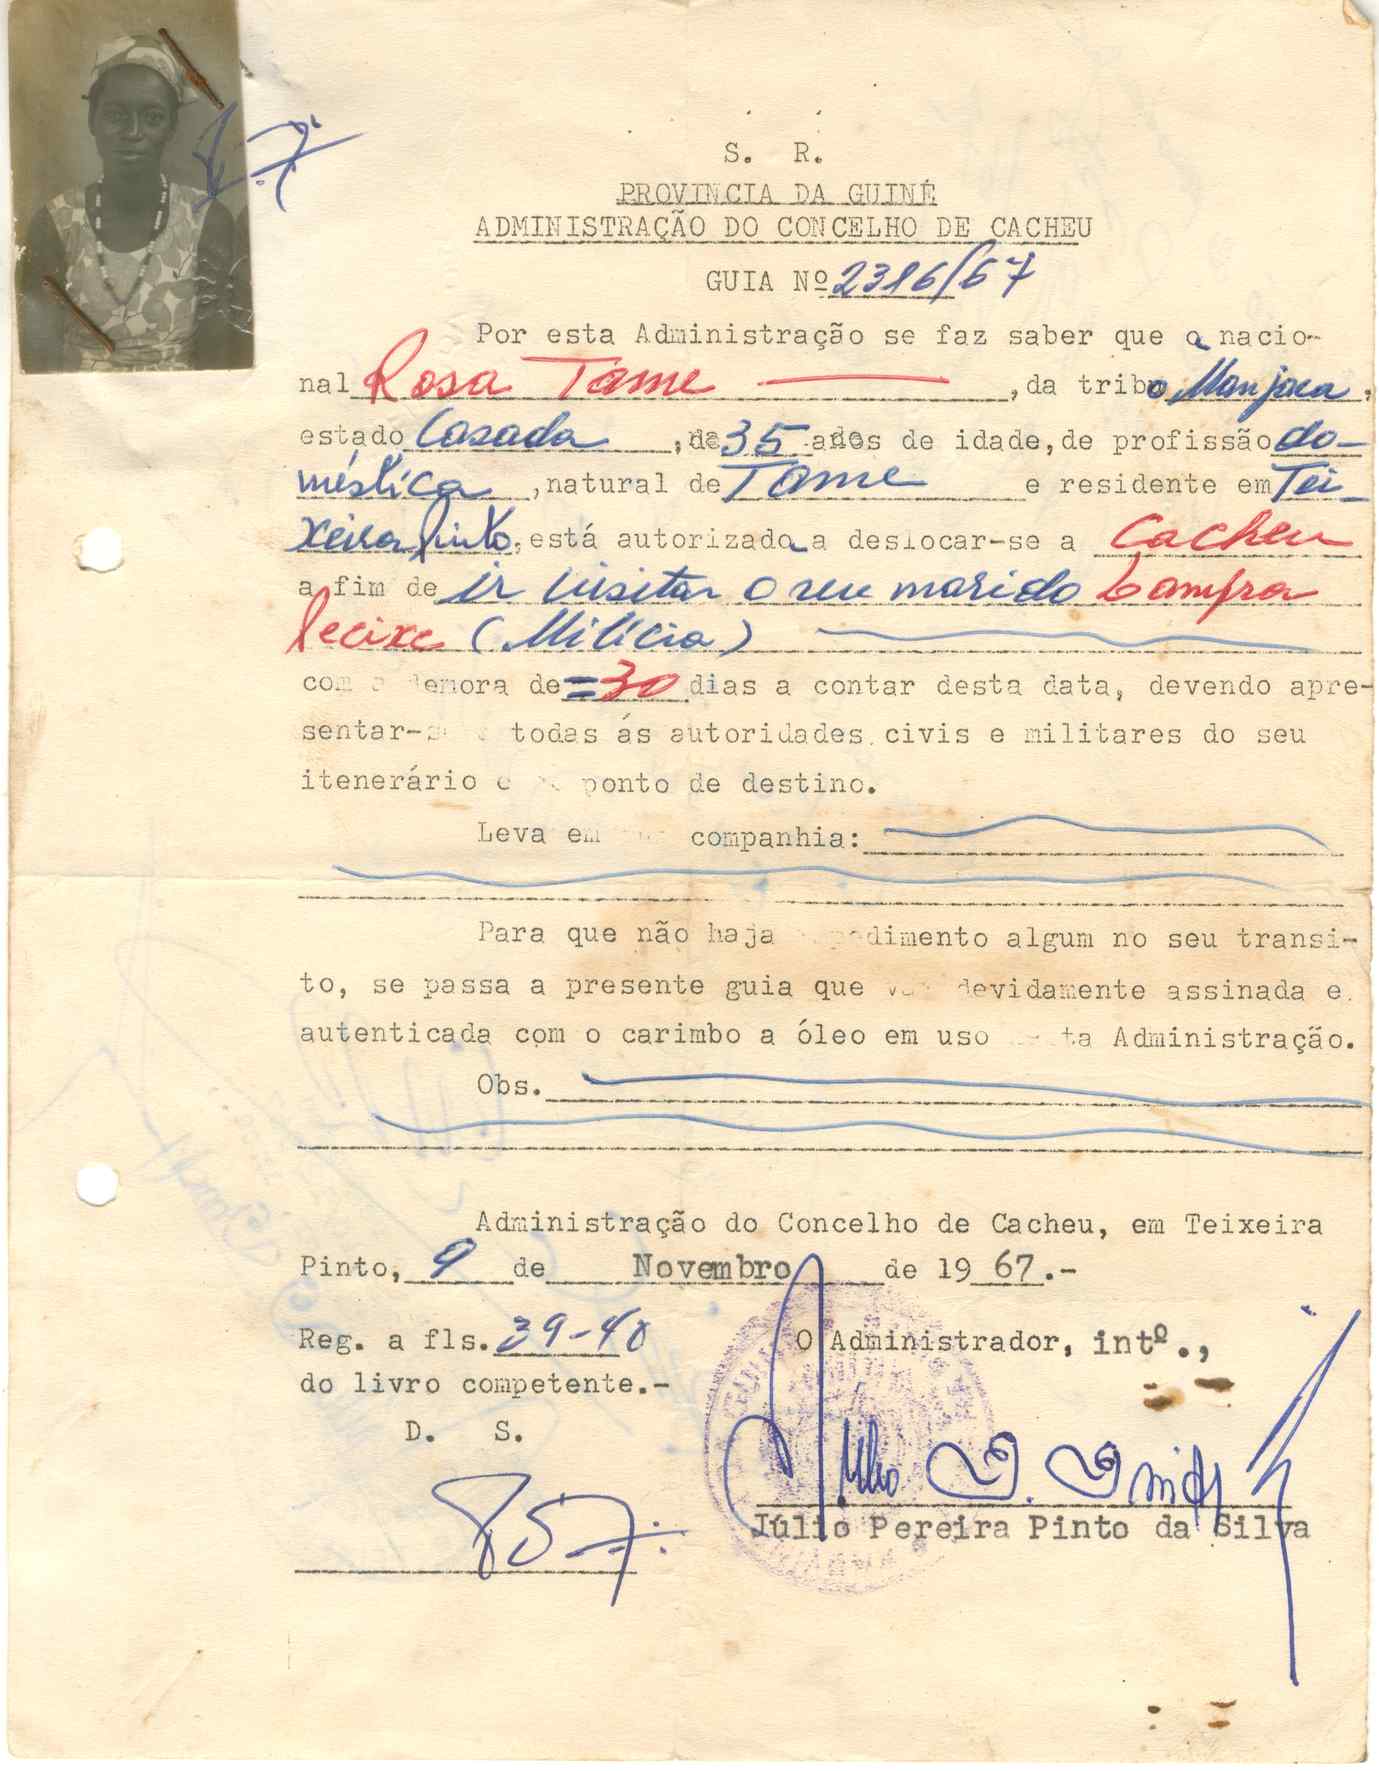 S. R.
PROVINCIA DA GUINÉ
ADMINISTRAÇÃO DO CONCELHO DE CACHEU
GUIA Nº 2316/67
Por esta Administração se faz saber que a nacio-
nal Rosa Tame ,da tribo Manjaca,
estado Casada ,de 35 anos de idade,de profissão do-
méstica ,natural de Tame e residente em Tei-
xeira Pinto,está autorizada a deslocar-se a Cacheu
a fim de ir visitar o seu marido
(Milícia)
com a demora de =30 dias a contar desta data, devendo apre-
sentar-se a todas ás autoridades civis e militares do seu
itenerário e ponto de destino.
Leva em sua companhia:
Para que não haja impedimento algum no seu transi-
to, se passa a presente guia que vai devidamente assinada e
autenticada com o carimbo a óleo em uso nesta Administração.
Obs.
Administração do Concelho de Cacheu, em Teixeira
Pinto, 9 de Novembro de 1967.-
Reg. a fls. 39-40 O Administrador, intº.,
do livro competente.-
D. S.
Júlio Pereira Pinto da Silva